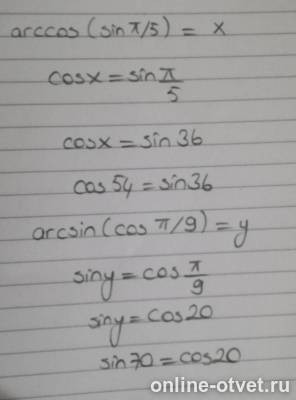 arccos(sin π/5) = x
cosx = sin π/5
cosx = sin 36
cos 54 = sin 36
arcsin(cos π/9) = y
siny = cos π/9
siny = cos 20
sin 70 = cos 20
online-otvet.ru